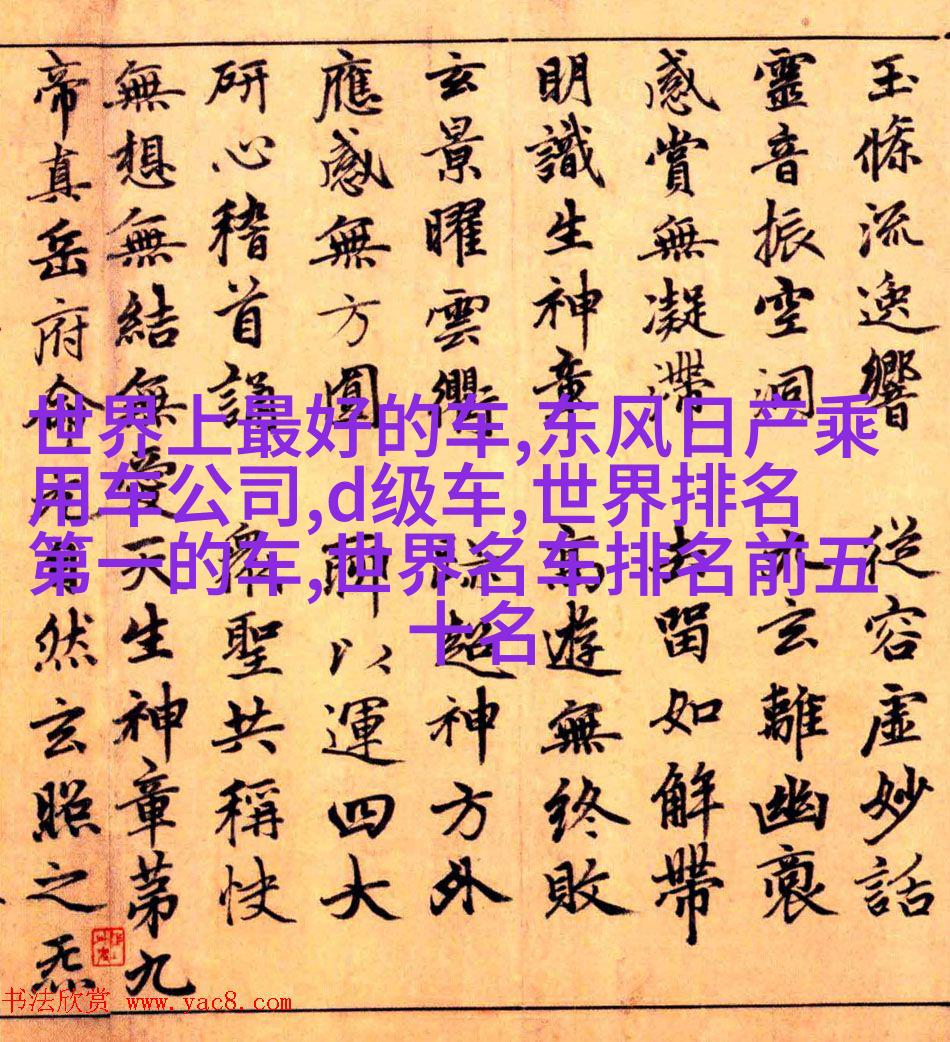 世界上最好的车,东风日产乘
用车公司,d级车,世界排名
第一的车,世界名车排名前五
十名
玉條流逸響 從容虛妙話
靈音振空洞 玄離幽裛
感賞無凝滯 去留如解帶
明識生神章 高遊無終敗
玄景曜雲衢 超神方外
應感無方圓 聊以運四大
研心稽首謠 衆聖共稱快
無想無結無愛天生神章第九
帝真岳府俞元自然玄照之炁
书法欣赏 www.yac8.com